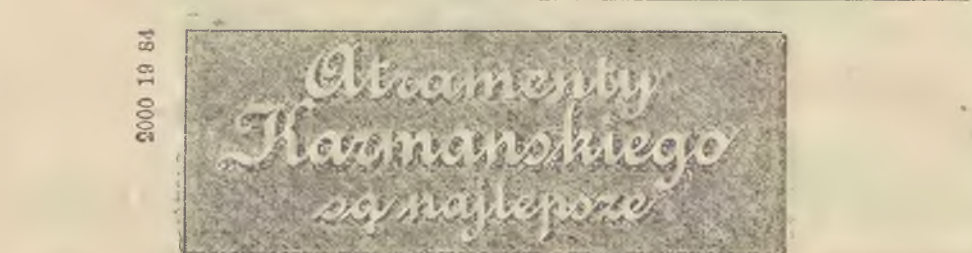 2000 19 84
Atramenty
Kazmanskiego
są najlepsze